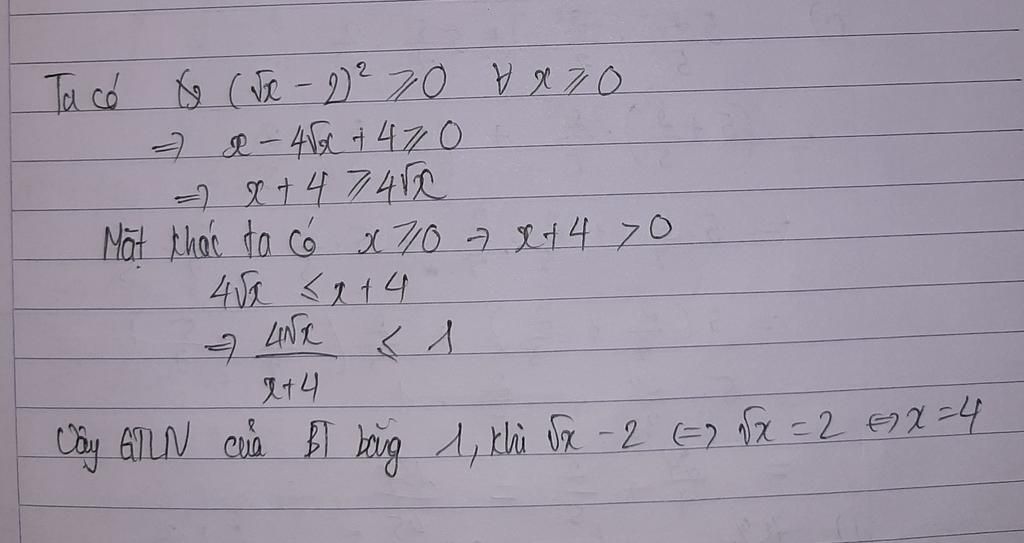 Ta có (√x - 2)² ⩾ 0 ∀ x ⩾ 0
=> x - 4√x + 4 ⩾ 0
=> x + 4 ⩾ 4√x
Mặt khác ta có x ⩾ 0 → x + 4 > 0
4√x ⩽ x + 4
=> 4√x / x+4 ⩽ 1
Vậy GTLN của BT bằng 1, khi √x - 2 <=> √x = 2 <=> x = 4